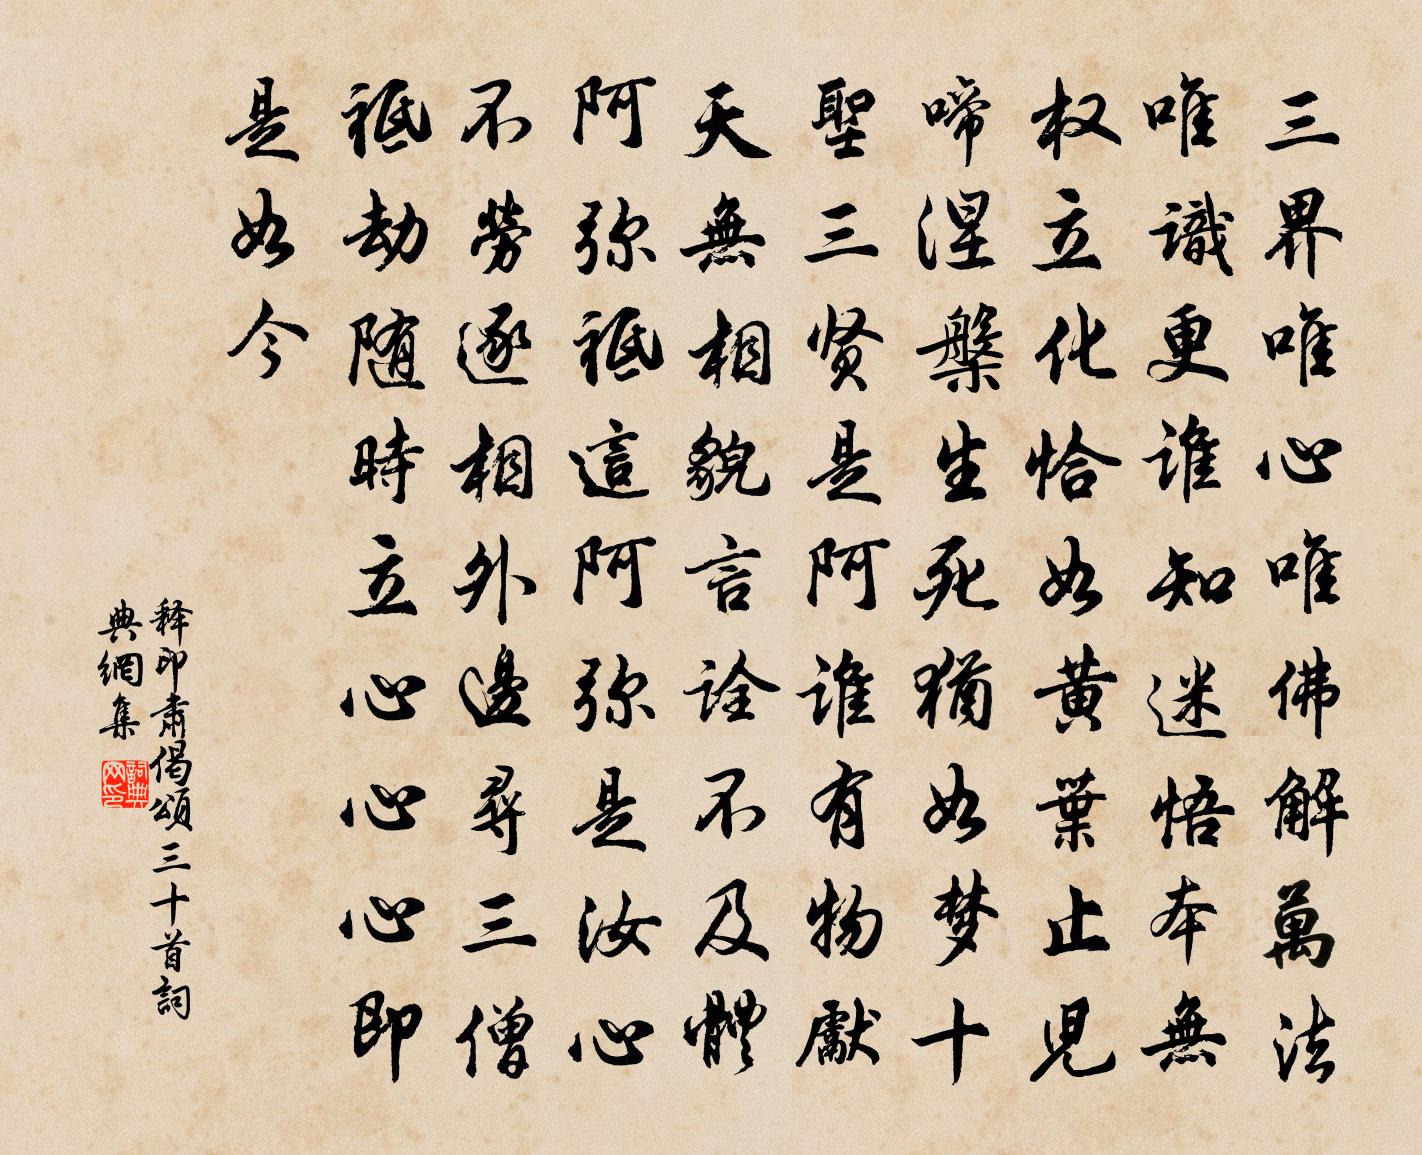 三界唯心唯佛解萬法
唯識更誰知迷悟本無
权立化恰如黄葉止児
啼涅槃生死猶如梦十
聖三贤是阿誰有物獻
天無相貌言詮不及體
阿弥祗這阿弥是汝心
不勞逐相外邊尋三僧
祗劫随時立心心心即
是如今
释印肅偈頌三十首詞
典網集
詞典网印